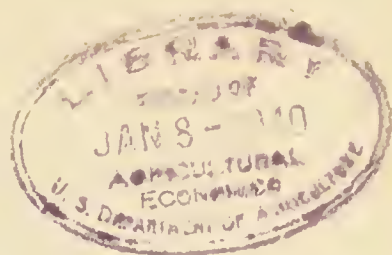 LIBRARY
JAN 8 -
AGRICULTURAL
ECONOMICS
U. S. DEPARTMENT OF AGRICULTURE